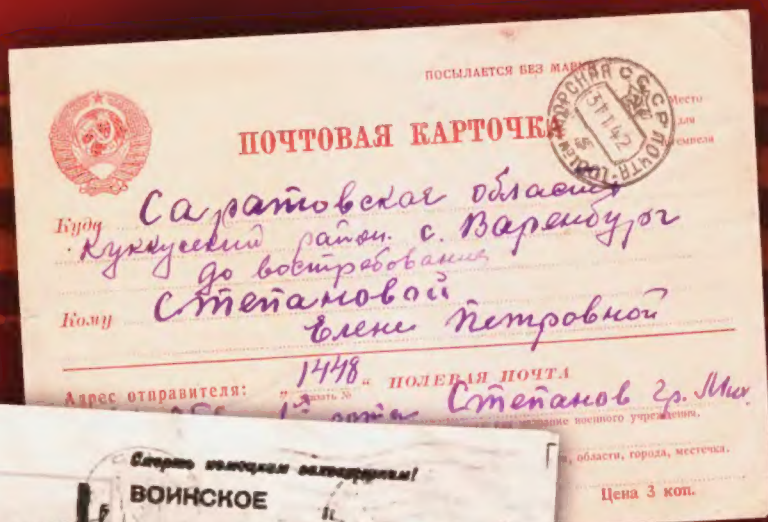 ПОСЫЛАЕТСЯ БЕЗ
ПОЧТОВАЯ КАРТОЧКА
СССР ПОЧТА
42
Место
для
Куда Саратовская область
Куккусский район. с. Варенбург
до востребование
Кому Степановой
Елене Петровной
Адрес отправителя: „ 1448 “ ПОЛЕВАЯ ПОЧТА
Степанов гр. Мих.
военного учреждения.
области, города, местечка.
Цена 3 коп.
Смерть немецким оккупантам!
ВОИНСКОЕ